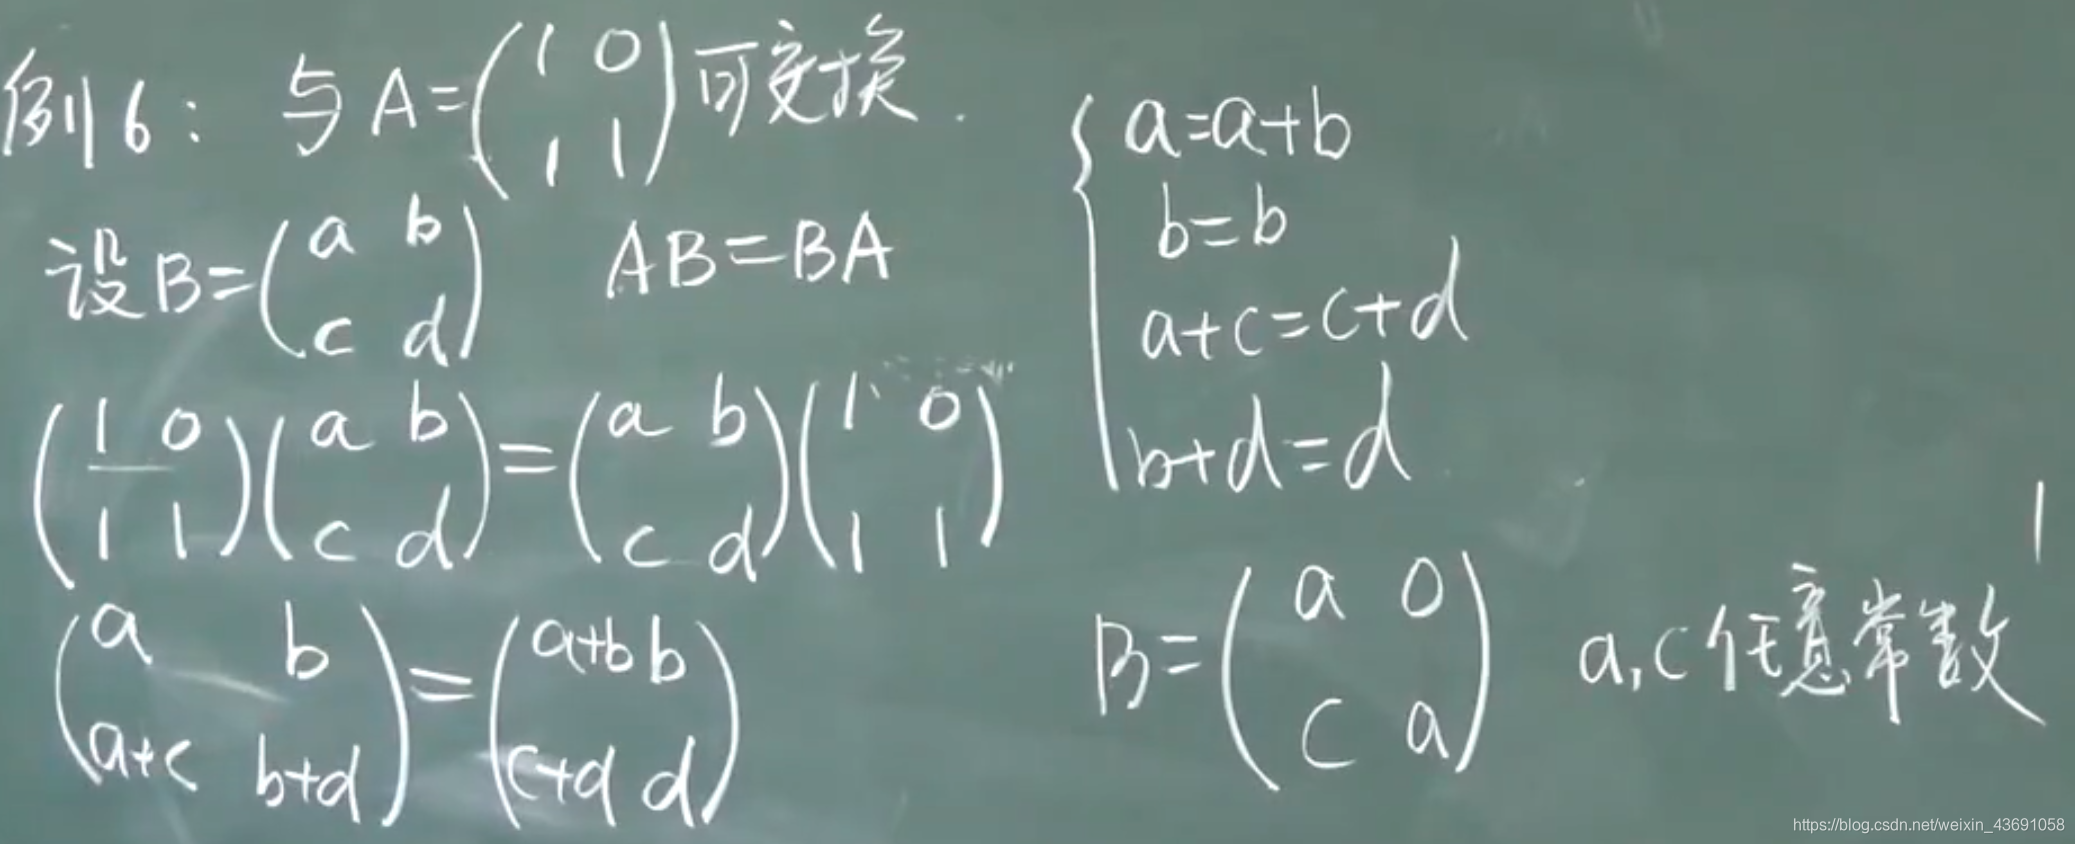 例6: 与A=(1 0
1 1)可交换.
设B=(a b
c d) AB=BA
(1 0
1 1)(a b
c d)=(a b
c d)(1 0
1 1)
(a b
a+c b+d)=(a+b b
c+d d)
{a=a+b
b=b
a+c=c+d
b+d=d
B=(a 0
c a) a,c任意常数
https://blog.csdn.net/weixin_43691058